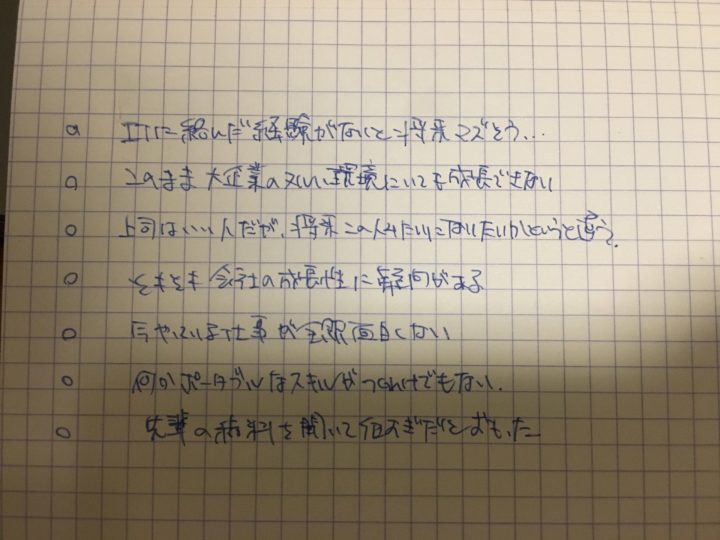 ITに絡んだ経験がないと将来マズそう…
このまま大企業のヌルい環境にいても成長できない
上司はいい人だが、将来この人みたいになりたいかというと違う。
そもそも会社の成長性に疑問がある
今やっている仕事が全然面白くない
何かポータブルなスキルがつくわけでもない.
先輩の給料を聞いて低すぎだとおもった